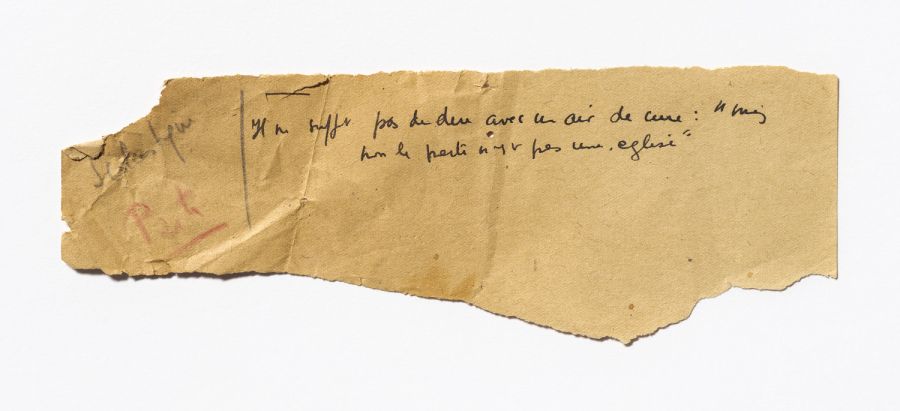 Scholastique
Parti
Il ne suffit pas de dire avec un air de cure : "mais
non le parti n'est pas une église"